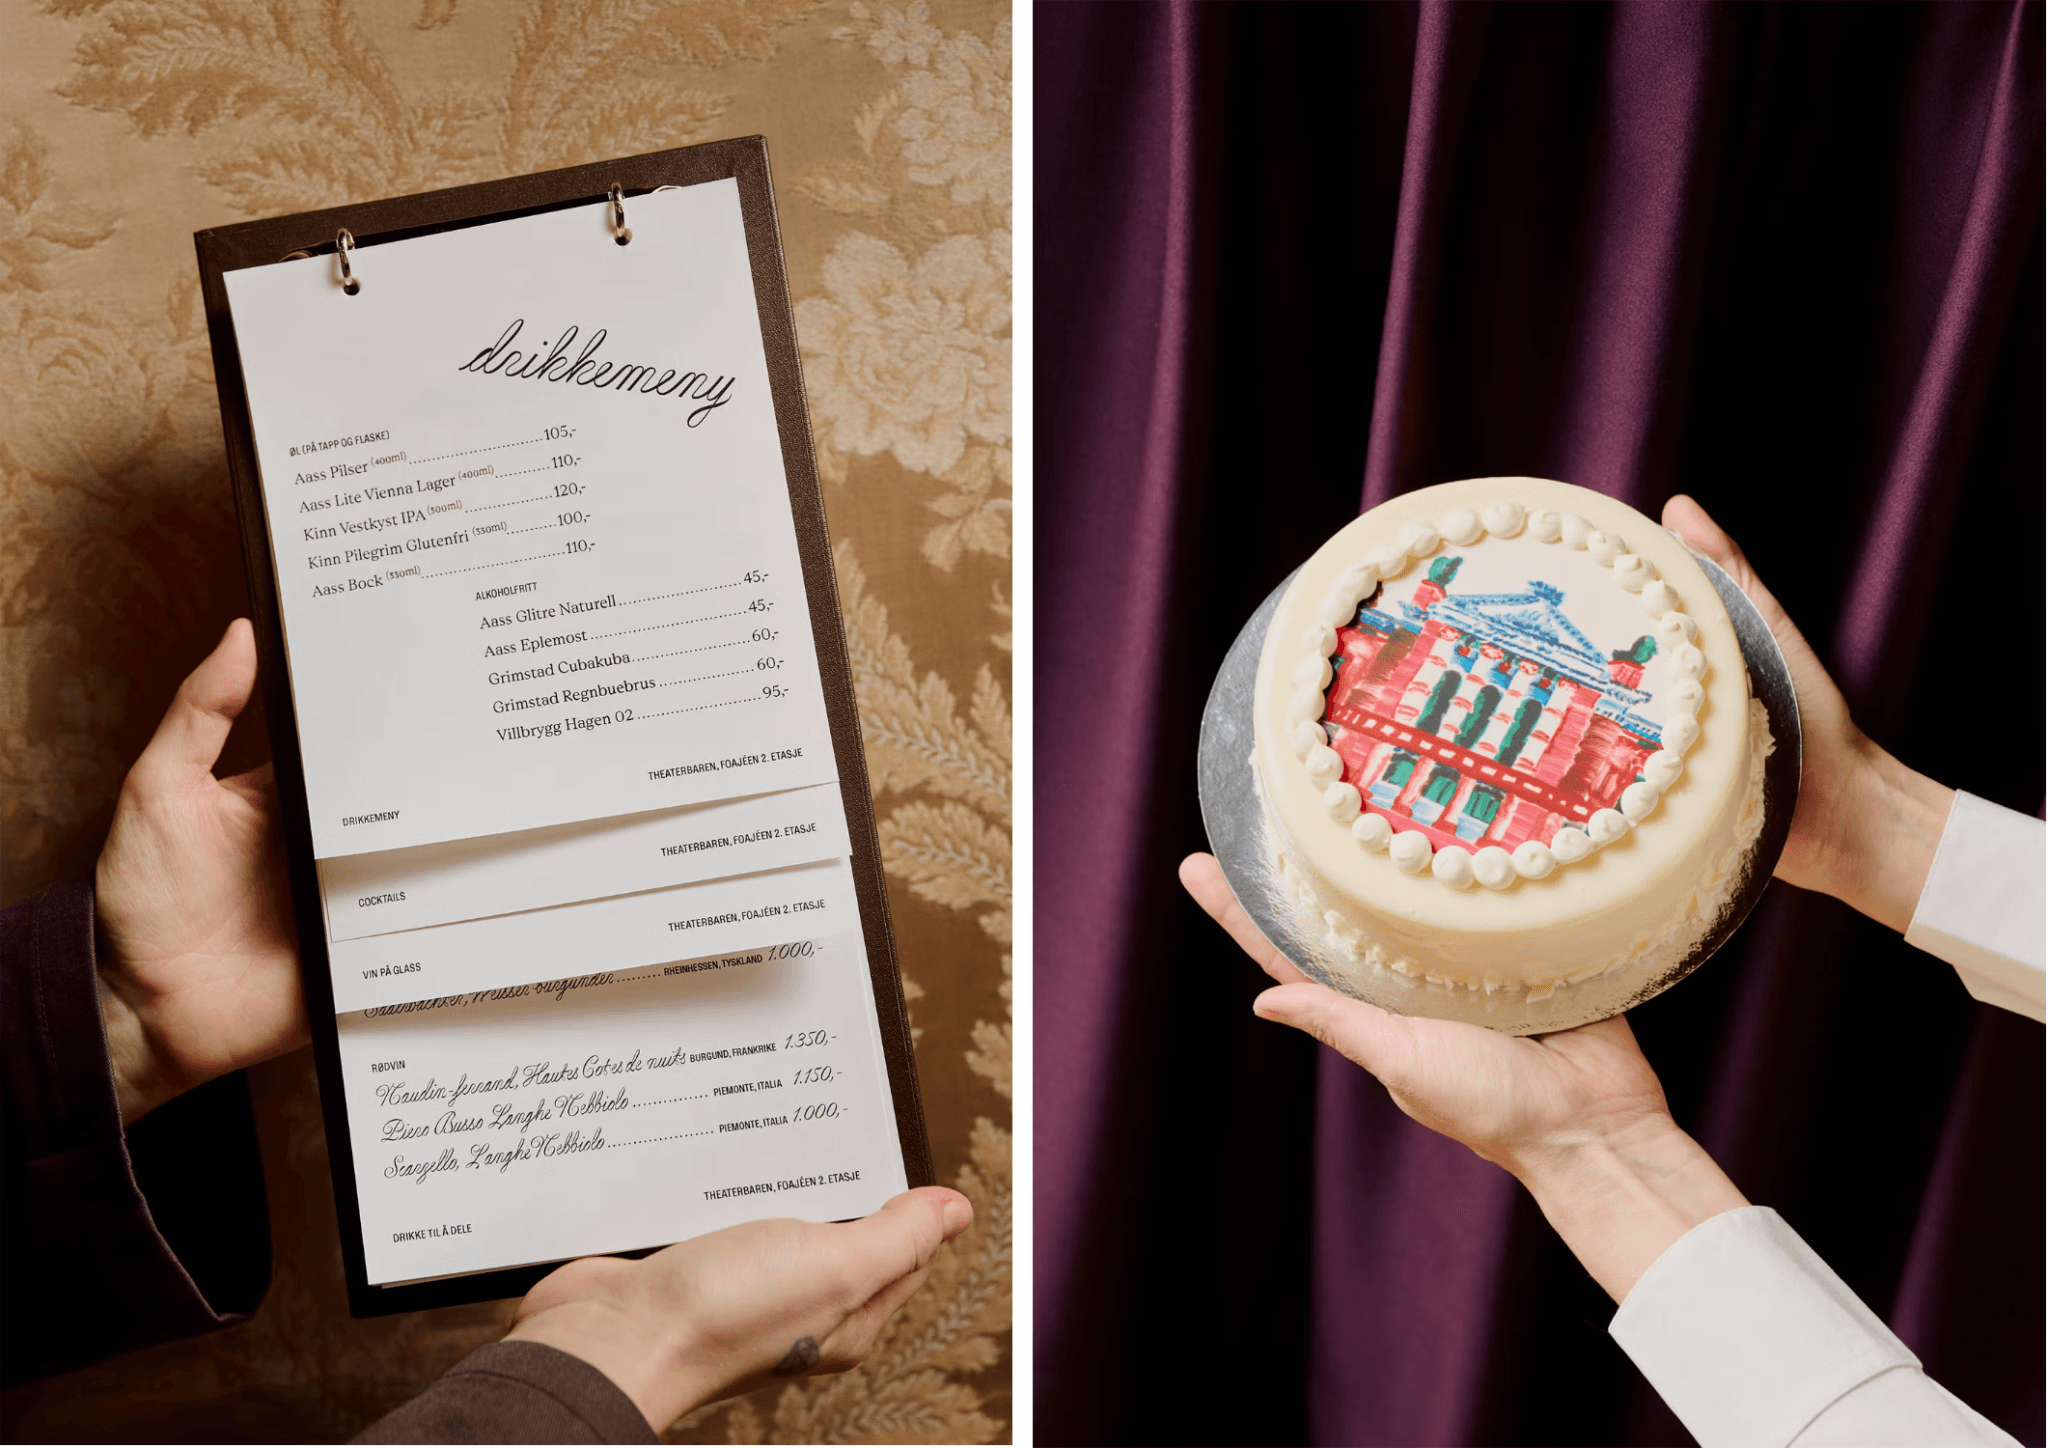 drikkemeny
ØL (PÅ TAPP OG FLASKE)
Aass Pilser (400ml) ........................ 105,-
Aass Lite Vienna Lager (400ml) .......... 110,-
Kinn Vestkyst IPA (500ml) ................ 120,-
Kinn Pilegrim Glutenfri (330ml) ......... 100,-
Aass Bock (330ml) .......................... 110,-
ALKOHOLFRITT
Aass Glitre Naturell ...................... 45,-
Aass Eplemost ............................ 45,-
Grimstad Cubakuba ..................... 60,-
Grimstad Regnbuebrus ................. 60,-
Villbrygg Hagen 02 ..................... 95,-
THEATERBAREN, FOAJÉEN 2. ETASJE
DRIKKEMENY
THEATERBAREN, FOAJÉEN 2. ETASJE
COCKTAILS
THEATERBAREN, FOAJÉEN 2. ETASJE
VIN PÅ GLASS
Weisser burgunder ......... RHEINHESSEN, TYSKLAND 1.000,-
RØDVIN
Naudin-ferrand, Hautes Cotes de nuits BURGUND, FRANKRIKE 1.350,-
Piero Busso Langhe Nebbiolo ............... PIEMONTE, ITALIA 1.150,-
Scarzello, Langhe Nebbiolo ..................... PIEMONTE, ITALIA 1.000,-
THEATERBAREN, FOAJÉEN 2. ETASJE
DRIKKE TIL Å DELE